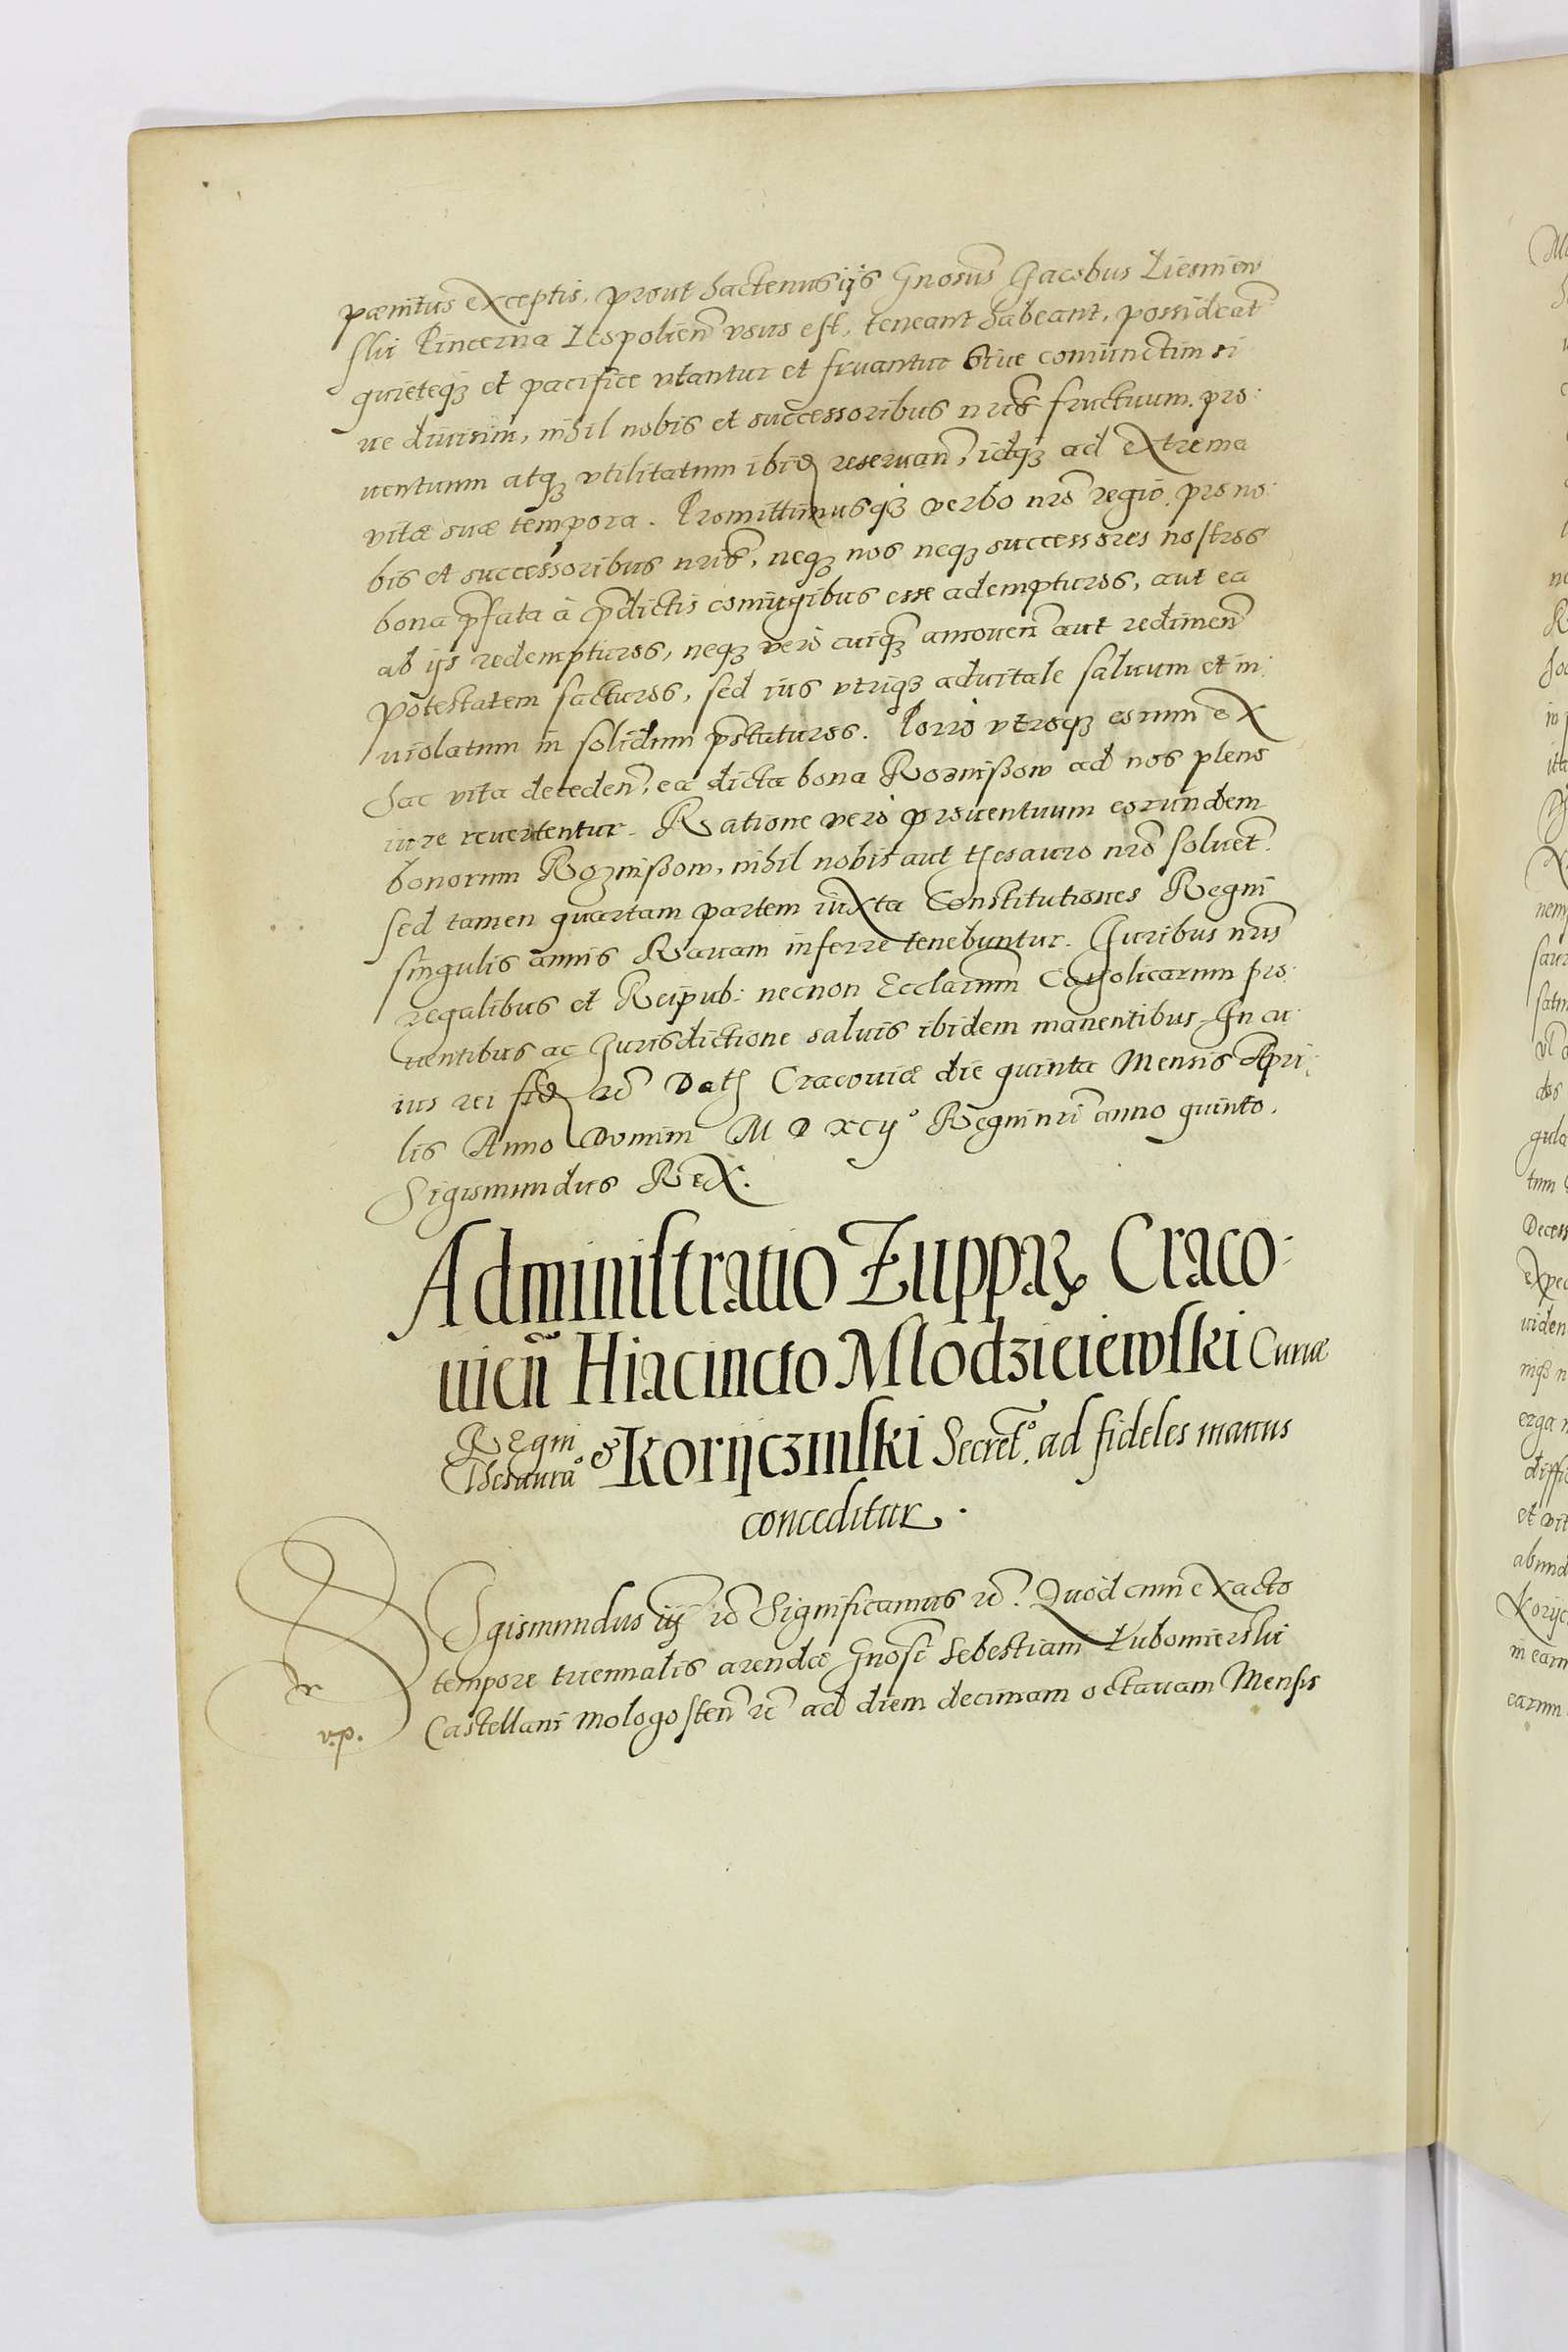 pænitus exceptis, prout hactenus ijs Gnosus Jacobus Liesniow
ski Pincerna Leopolien̄ usus est, teneant habeant, possideāt
quieteqȝ et pacifice utantur et fruantur sive coniunctim si
ve divisim, nihil nobis et successoribus nris fructuum, pro:
uentuum atqȝ utilitatum ibid reseruan̄, idqȝ ad extrema
vitæ suæ tempora. Promittimusqȝ verbo nro regio, pro no:
bis et successoribus nris, neqȝ nos neqȝ successores nostros
bona pfata à pdictis coniugibus esse adempturos, aut ea
ab ijs redempturos, neqȝ vero cuiqȝ amouen̄ aut redimen̄
potestatem facturos, sed ius utriqȝ aduitale saluum et in:
uiolatum in solidum pstaturos. Porro utroqȝ eorum ex
hac vita deceden̄, ea dicta bona Rozniszow ad nos pleno
iure reuertentur. Ratione vero prouentuum eorundem
bonorum Rozniszow, nihil nobis aut thesauro nro soluēt.
sed tamen quartam partem iuxta Constitutiones Regni
singulis annis Rauam inferre tenebuntur. Juribus nris
regalibus et Reipub: necnon Ecclarum Catholicarum pro:
uentibus ac Jurisdictione saluis ibidem manentibus. In cu
ius rei fid rc̄ Dath Cracouiæ die quinta Mensis Apri:
lis Anno Domini M D XCij° Regni nri anno quinto.
Sigismundus Rex.
Administratio Zupparȝ Craco:
uien̄ Hiacincto Mlodzieiewski Curiæ
Regni Thesaura° & Korijczinski Secret°. ad fideles manus
conceditur.
SIgismundus iij rc̄ Significamus rc̄. Quod cum exacto
tempore triennalis arendæ Gnosi Sebestiani Lubomierski
Castellani Mologosten̄ rc̄ ad diem decimam octauam Mensis
v.p.